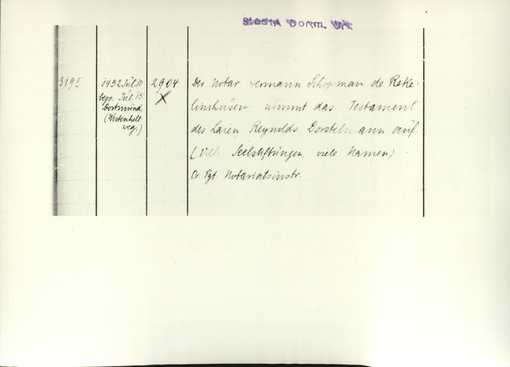 StadtA Dortm. Urk
3195
1452 Jul. 10
bezw. Jul. 15
Dortmund,
2904
Der Notar Hermann Schopman de Reke-
linchusen nimmt das Testament
des Laien Reynolds Dorstelman auf.
(viele Seelstiftungen, viele Namen)
Or. Pgt. Notariatsinstr.